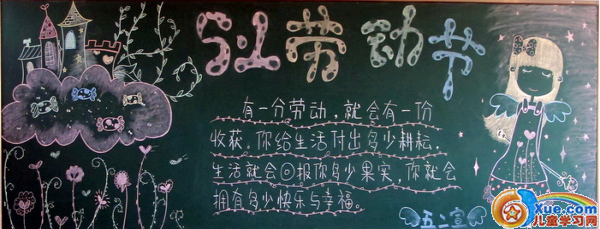 5.1劳动节
有一分劳动，就会有一份
收获。你给生活付出多少耕耘，
生活就会回报你多少果实，你就会
拥有多少快乐与幸福。
五二宣
Xue.com
儿童学习网